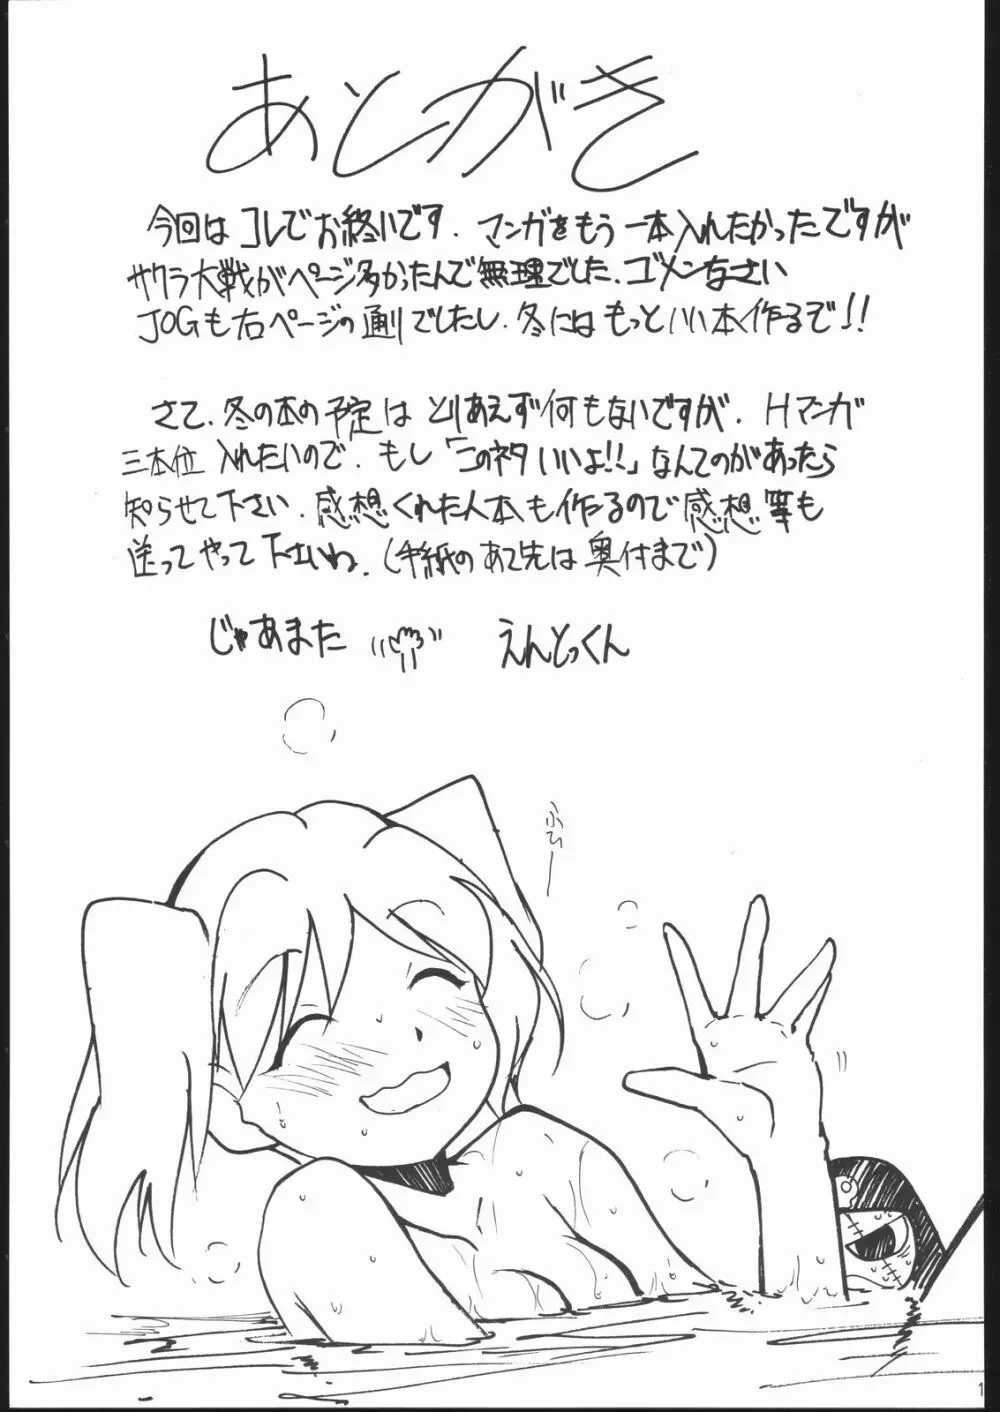 あとがき
今回はコレでお終いです．マンガをもう一本入れたかったですが
サクラ大戦がページ多かったんで無理でした．ゴメンなさい
JOGも右ページの通りでしたし．冬にはもっといい本作るぞ!!
さて、冬の本の予定はとりあえず何もないですが、Hマンガ
三本位入れたいので、もし「このネタいいよ!!」なんてのがあったら
知らせて下さい．感想くれた人本も作るので感想等も
送ってやって下さいね．(手紙のあて先は奥付まで)
じゃあまた えんとっくん
ふひー
1